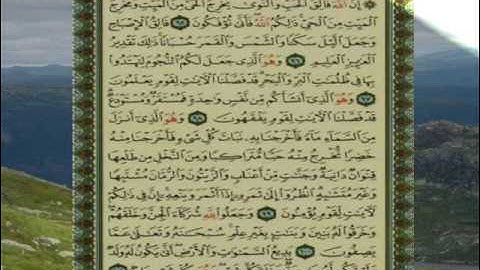 إِنَّ اللَّهَ فَالِقُ الْحَبِّ وَالنَّوَىٰ يُخْرِجُ الْحَيَّ مِنَ الْمَيِّتِ وَمُخْرِجُ
الْمَيِّتِ مِنَ الْحَيِّ ذَٰلِكُمُ اللَّهُ فَأَنَّىٰ تُؤْفَكُونَ ٩٥ فَالِقُ الْإِصْبَاحِ
وَجَعَلَ اللَّيْلَ سَكَنًا وَالشَّمْسَ وَالْقَمَرَ حُسْبَانًا ذَٰلِكَ تَقْدِيرُ
الْعَزِيزِ الْعَلِيمِ ٩٦ وَهُوَ الَّذِي جَعَلَ لَكُمُ النُّجُومَ لِتَهْتَدُوا
بِهَا فِي ظُلُمَٰتِ الْبَرِّ وَالْبَحْرِ قَدْ فَصَّلْنَا الْآيَٰتِ لِقَوْمٍ يَعْلَمُونَ
٩٧ وَهُوَ الَّذِي أَنْشَأَكُمْ مِنْ نَفْسٍ وَٰحِدَةٍ فَمُسْتَقَرٌّ وَمُسْتَوْدَعٌ
قَدْ فَصَّلْنَا الْآيَٰتِ لِقَوْمٍ يَفْقَهُونَ ٩٨ وَهُوَ الَّذِي أَنْزَلَ
مِنَ السَّمَاءِ مَاءً فَأَخْرَجْنَا بِهِ نَبَاتَ كُلِّ شَيْءٍ فَأَخْرَجْنَا مِنْهُ
خَضِرًا نُخْرِجُ مِنْهُ حَبًّا مُتَرَاكِبًا وَمِنَ النَّخْلِ مِنْ طَلْعِهَا
قِنْوَانٌ دَانِيَةٌ وَجَنَّٰتٍ مِنْ أَعْنَابٍ وَالزَّيْتُونَ وَالرُّمَّانَ مُشْتَبِهًا
وَغَيْرَ مُتَشَٰبِهٍ انْظُرُوا إِلَىٰ ثَمَرِهِ إِذَا أَثْمَرَ وَيَنْعِهِ إِنَّ فِي ذَٰلِكُمْ
لَآيَٰتٍ لِقَوْمٍ يُؤْمِنُونَ ٩٩ وَجَعَلُوا لِلَّهِ شُرَكَاءَ الْجِنَّ وَخَلَقَهُمْ
وَخَرَقُوا لَهُ بَنِينَ وَبَنَٰتٍ بِغَيْرِ عِلْمٍ سُبْحَٰنَهُ وَتَعَٰلَىٰ عَمَّا
يَصِفُونَ ١٠٠ بَدِيعُ السَّمَٰوَٰتِ وَالْأَرْضِ أَنَّىٰ يَكُونُ لَهُ وَلَدٌ